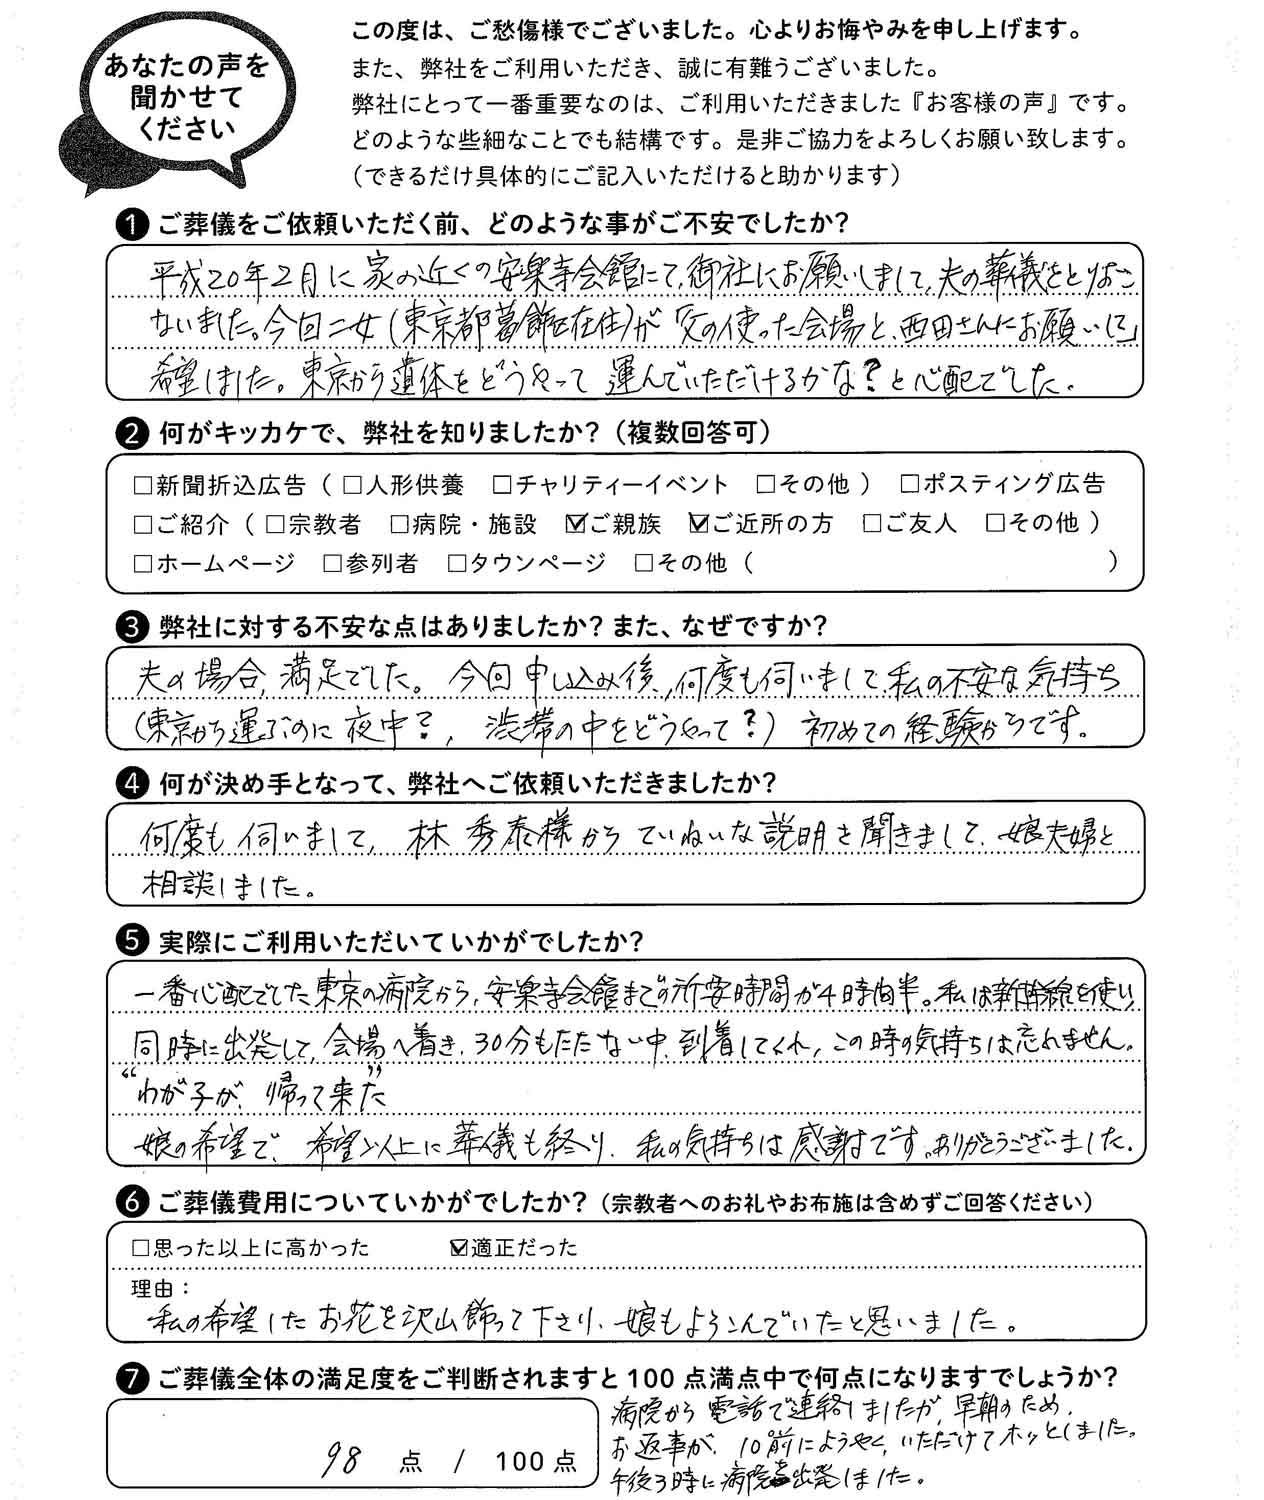 あなたの声を
聞かせて
ください
この度は、ご愁傷様でございました。心よりお悔やみを申し上げます。
また、弊社をご利用いただき、誠に有難うございました。
弊社にとって一番重要なのは、ご利用いただきました『お客様の声』です。
どのような些細なことでも結構です。是非ご協力をよろしくお願い致します。
（できるだけ具体的にご記入いただけると助かります）
❶ ご葬儀をご依頼いただく前、どのような事がご不安でしたか?
平成20年2月に家の近くの安楽寺会館にて、御社にお願いしまして、夫の葬儀をとりおこ
ないました。今回二女(東京都葛飾区在住)が「父の使った会場と、西田さんにお願いして」
希望しました。東京から遺体をどうやって運んでいただけるかな?と心配でした。
❷ 何がキッカケで、弊社を知りましたか?（複数回答可）
□新聞折込広告（ □人形供養 □チャリティーイベント □その他 ） □ポスティング広告
□ご紹介（ □宗教者 □病院・施設 ☑ご親族 ☑ご近所の方 □ご友人 □その他 ）
□ホームページ □参列者 □タウンページ □その他（ ）
❸ 弊社に対する不安な点はありましたか? また、なぜですか?
夫の場合、満足でした。今回申し込み後、何度も伺いまして、私の不安な気持ち
(東京から運ぶのに夜中?, 渋滞の中をどうやって?) 初めての経験からです。
❹ 何が決め手となって、弊社へご依頼いただきましたか?
何度も伺いまして、林 秀泰様からていねいな説明を聞きまして、娘夫婦と
相談しました。
❺ 実際にご利用いただいていかがでしたか?
一番心配でした東京の病院から、安楽寺会館までの所要時間が4時間半。私は新幹線を使い
同時に出発して、会場へ着き、30分もたたない中、到着してくれ、この時の気持ちは忘れません。
“わが子が、帰って来た”
娘の希望で、希望以上に葬儀も終り、私の気持ちは感謝です。ありがとうございました。
❻ ご葬儀費用についていかがでしたか?（宗教者へのお礼やお布施は含めずご回答ください）
□思った以上に高かった ☑適正だった
理由：
私の希望したお花を沢山飾って下さり、娘もよろこんでいたと思いました。
❼ ご葬儀全体の満足度をご判断されますと100点満点中で何点になりますでしょうか?
98 点 / 100点
病院から電話で連絡しましたが、早朝のため、
お返事が、10前にようやく、いただけてホッとしました。
午後3時に病院出発しました。